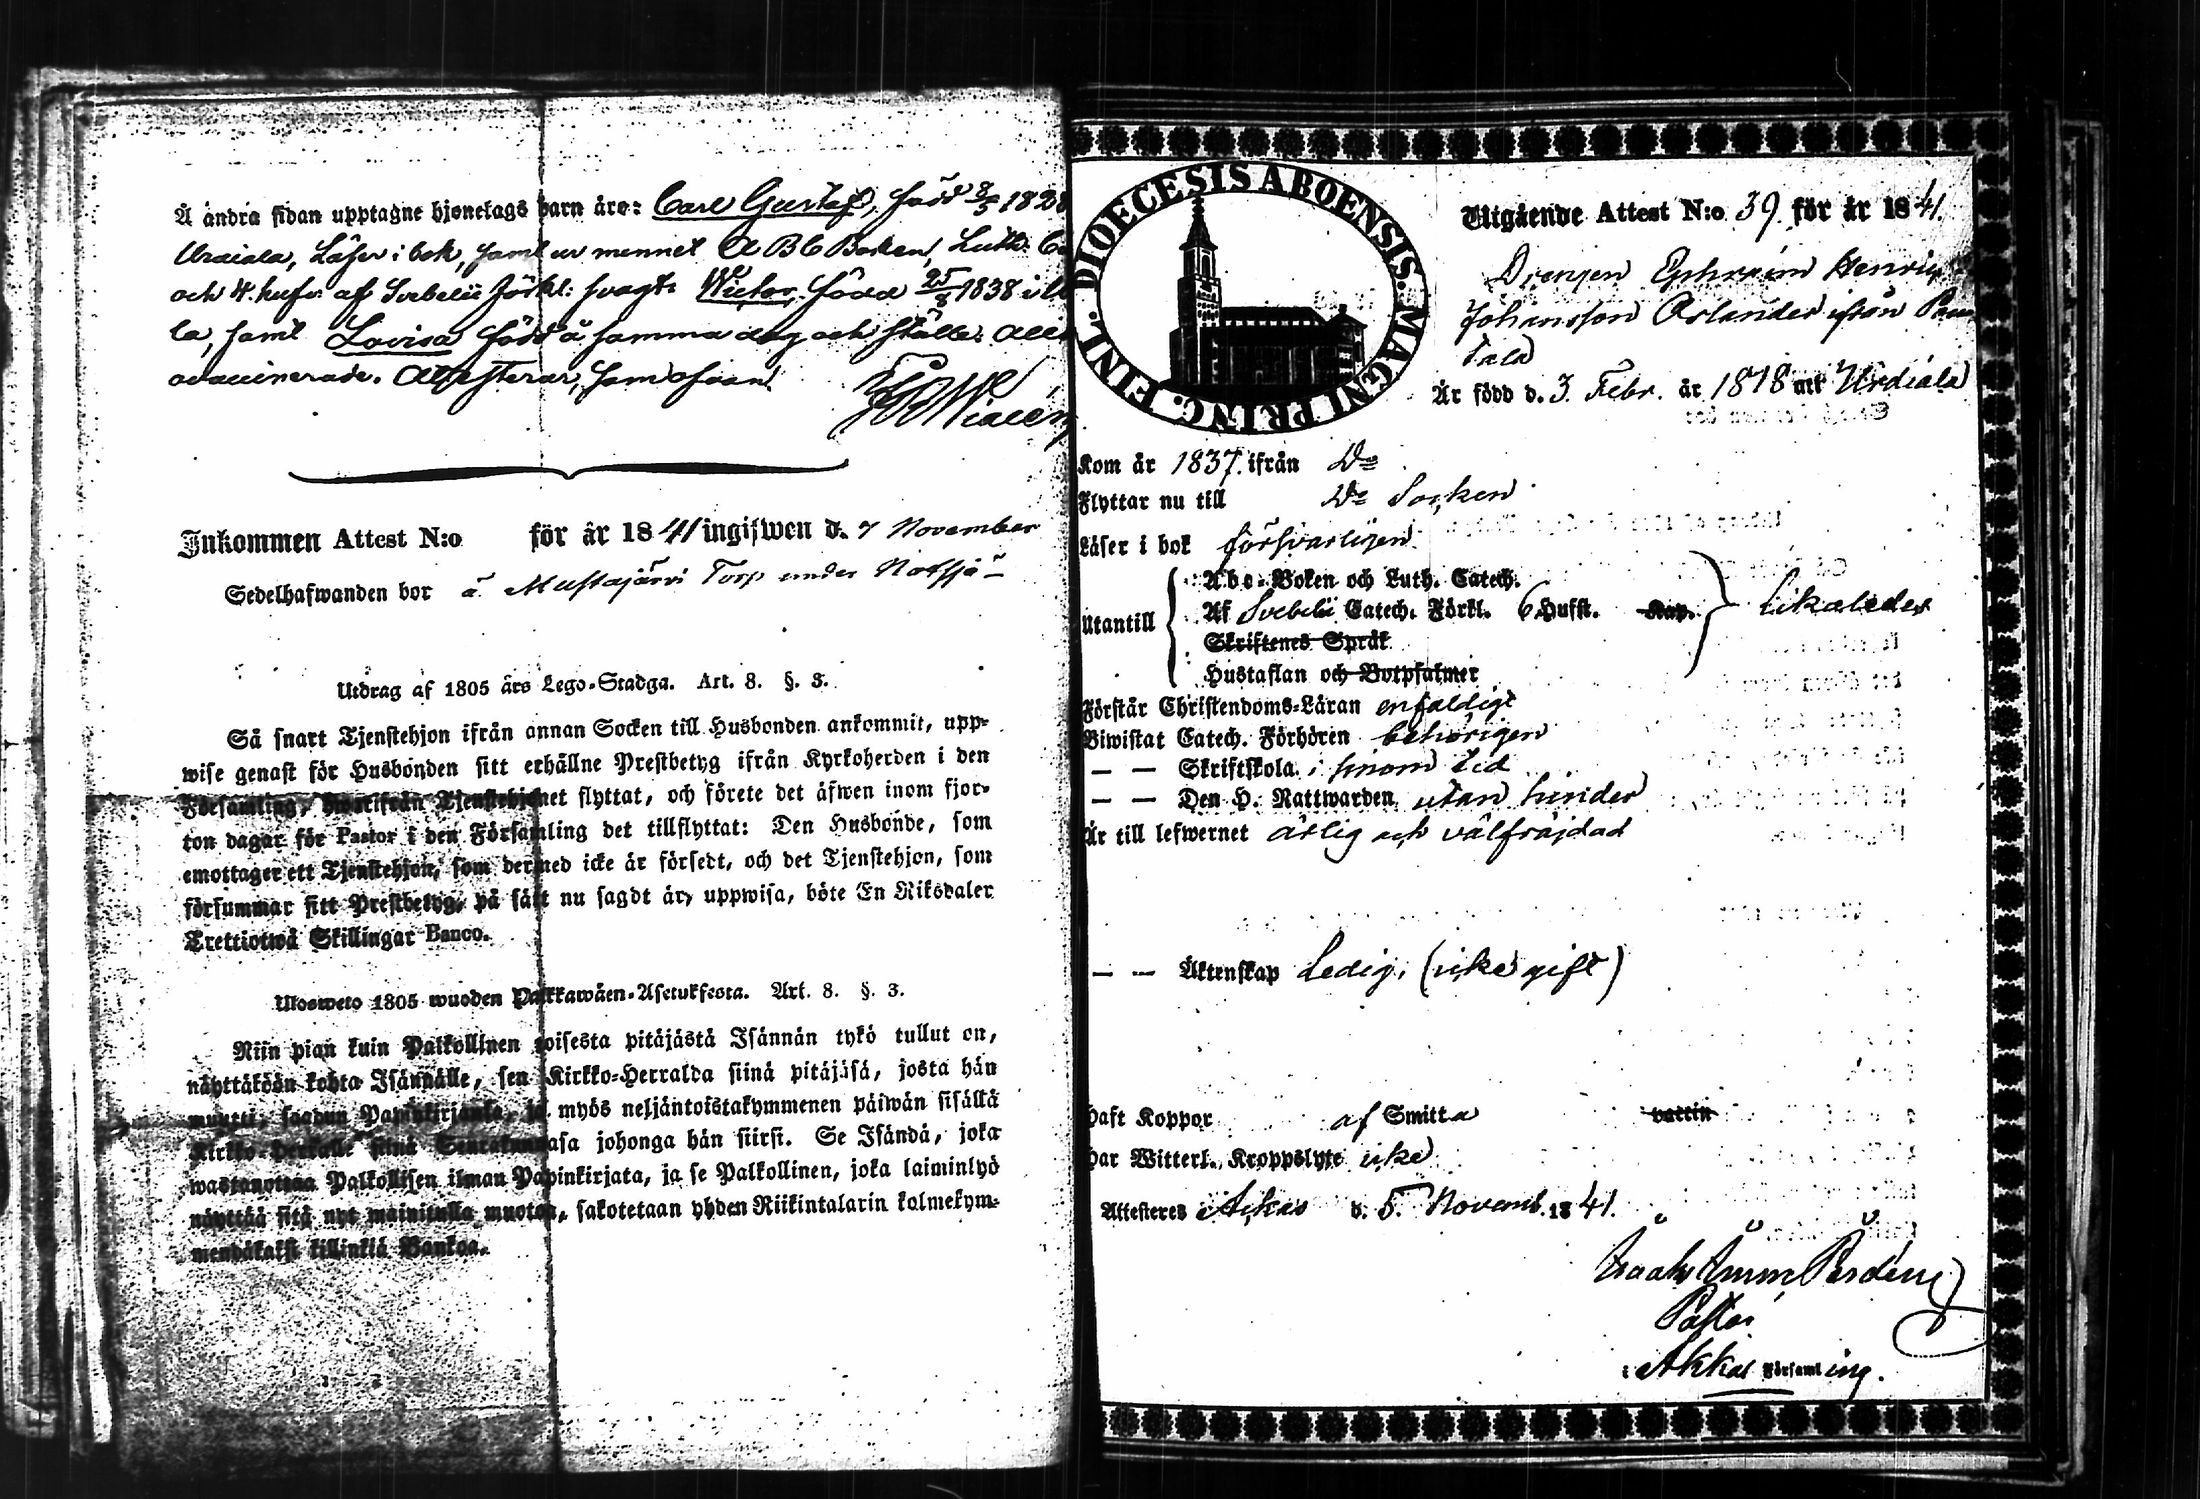 Å andra sidan upptagne hjonelags barn äro: Carl Gustaf, född 8/5 1828
Urdiala, Läser i bok, samt ur minnet A B C Boken, Luth. Ca
och 4. hufst. af Svebelii förkl: svagt. Victor, född 25/8 1838 i U
la, samt Lovisa född å samma dag och ställe. Alla
ovaccinerade. Attesterar, som ofvan!
Inkommen Attest N:o för år 1841 ingifwen d. 7 November
Sedelhafwanden bor å Mustajärvi Torp under Notsjö
Utdrag af 1805 års Lego-Stadga. Art. 8. §. 3.
Så snart Tjenstehjon ifrån annan Socken till Husbonden ankommit, upp-
wise genast för Husbonden sitt erhållne Prestbetyg ifrån Kyrkoherden i den
Församling, hwarifrån Tjenstehjonet flyttat, och förete det äfwen inom fjor-
ton dagar för Pastor i den Församling det tillflyttat: Den Husbonde, som
emottager ett Tjenstehjon, som dermed icke är försedt, och det Tjenstehjon, som
försummar sitt Prestbetyg, på sätt nu sagdt är, uppwisa, böte En Riksdaler
Trettiotwå Skillingar Banco.
Ulosweto 1805 wuoden Palkkawäen-Asetuksesta. Art. 8. §. 3.
Niin pian kuin Palkollinen toisesta pitäjästä Isännän tykö tullut on,
näyttäköön kohta Isännälle, sen Kirkko-Herralda siinä pitäjäsä, josta hän
muutti, saadun Papinkirjansa, ja myös neljäntoistakymmenen päiwän sisällä
Kirkko-Herralle siinä Seurakunnasa johonga hän siirsi. Se Isändä, joka
wastanottaa Palkollisen ilman Papinkirjata, ja se Palkollinen, joka laiminlyö
näyttää sitä nyt mainitulla muoton, sakotetaan yhden Riikintalarin kolmekym-
mendäkaksi killinkiä Bankoa.
DIOECESIS ABOENSIS. MAGNI PRINC. FINL.
Utgående Attest N:o 39. för år 1841.
Drengen Ephraim Henric
Johansson Arlander ifrån Pam
tala
Är född d. 3. Febr. år 1818 uti Urdiala
Kom år 1837. ifrån Do
Flyttar nu till Do Socken
Läser i bok försvarligen.
Utantill
Abc-Boken och Luth. Catech.
Af Svebelii Catech. Förkl. 6 Hufst. Kap. likaledes
Skriftenes Språk
Hustaflan och Botpsalmer
Förstår Christendoms-Läran enfaldigt
Biwistat Catech. Förhören behörigen
— — Skriftskola i sinom tid
— — Den H. Nattwarden utan hinder
Är till lefwernet ärlig och välfräjdad
— — Äktenskap Ledig, (icke gift)
Haft Koppor af Smitta vaccin
Har Witterl. Kroppslyte icke
Attesteres i Ackas d. 5. Novemb. 1841.
Pastor
i Akkas Församling.